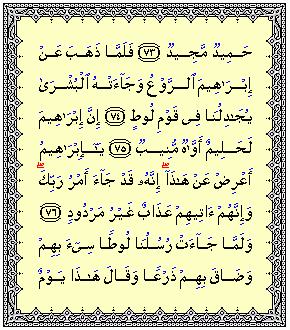 حَمِيدٌ مَّجِيدٌ ﴿٧٣﴾ فَلَمَّا ذَهَبَ عَنْ
إِبْرَٰهِيمَ ٱلرَّوْعُ وَجَآءَتْهُ ٱلْبُشْرَىٰ
يُجَٰدِلُنَا فِى قَوْمِ لُوطٍ ﴿٧٤﴾ إِنَّ إِبْرَٰهِيمَ
لَحَلِيمٌ أَوَّٰهٌ مُّنِيبٌ ﴿٧٥﴾ يَٰٓإِبْرَٰهِيمُ
أَعْرِضْ عَنْ هَٰذَآ ۖ إِنَّهُۥ قَدْ جَآءَ أَمْرُ رَبِّكَ ۖ
وَإِنَّهُمْ ءَاتِيهِمْ عَذَابٌ غَيْرُ مَرْدُودٍ ﴿٧٦﴾
وَلَمَّا جَآءَتْ رُسُلُنَا لُوطًا سِىٓءَ بِهِمْ
وَضَاقَ بِهِمْ ذَرْعًا وَقَالَ هَٰذَا يَوْمٌ